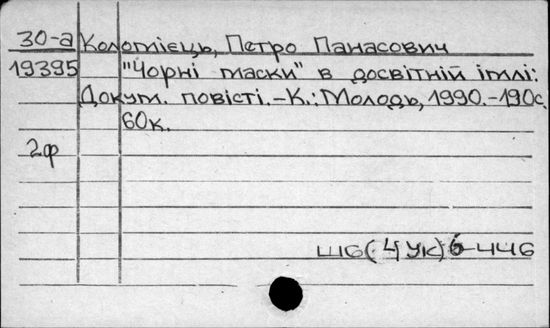 30-а Коломієць, Петро Панасович
19395 "Чорні маски" в досвітній імлі:
Докум. повісті.-К.:Молодь, 1990.-190с.
60к.
2ф
ШБ(4УК)6-446